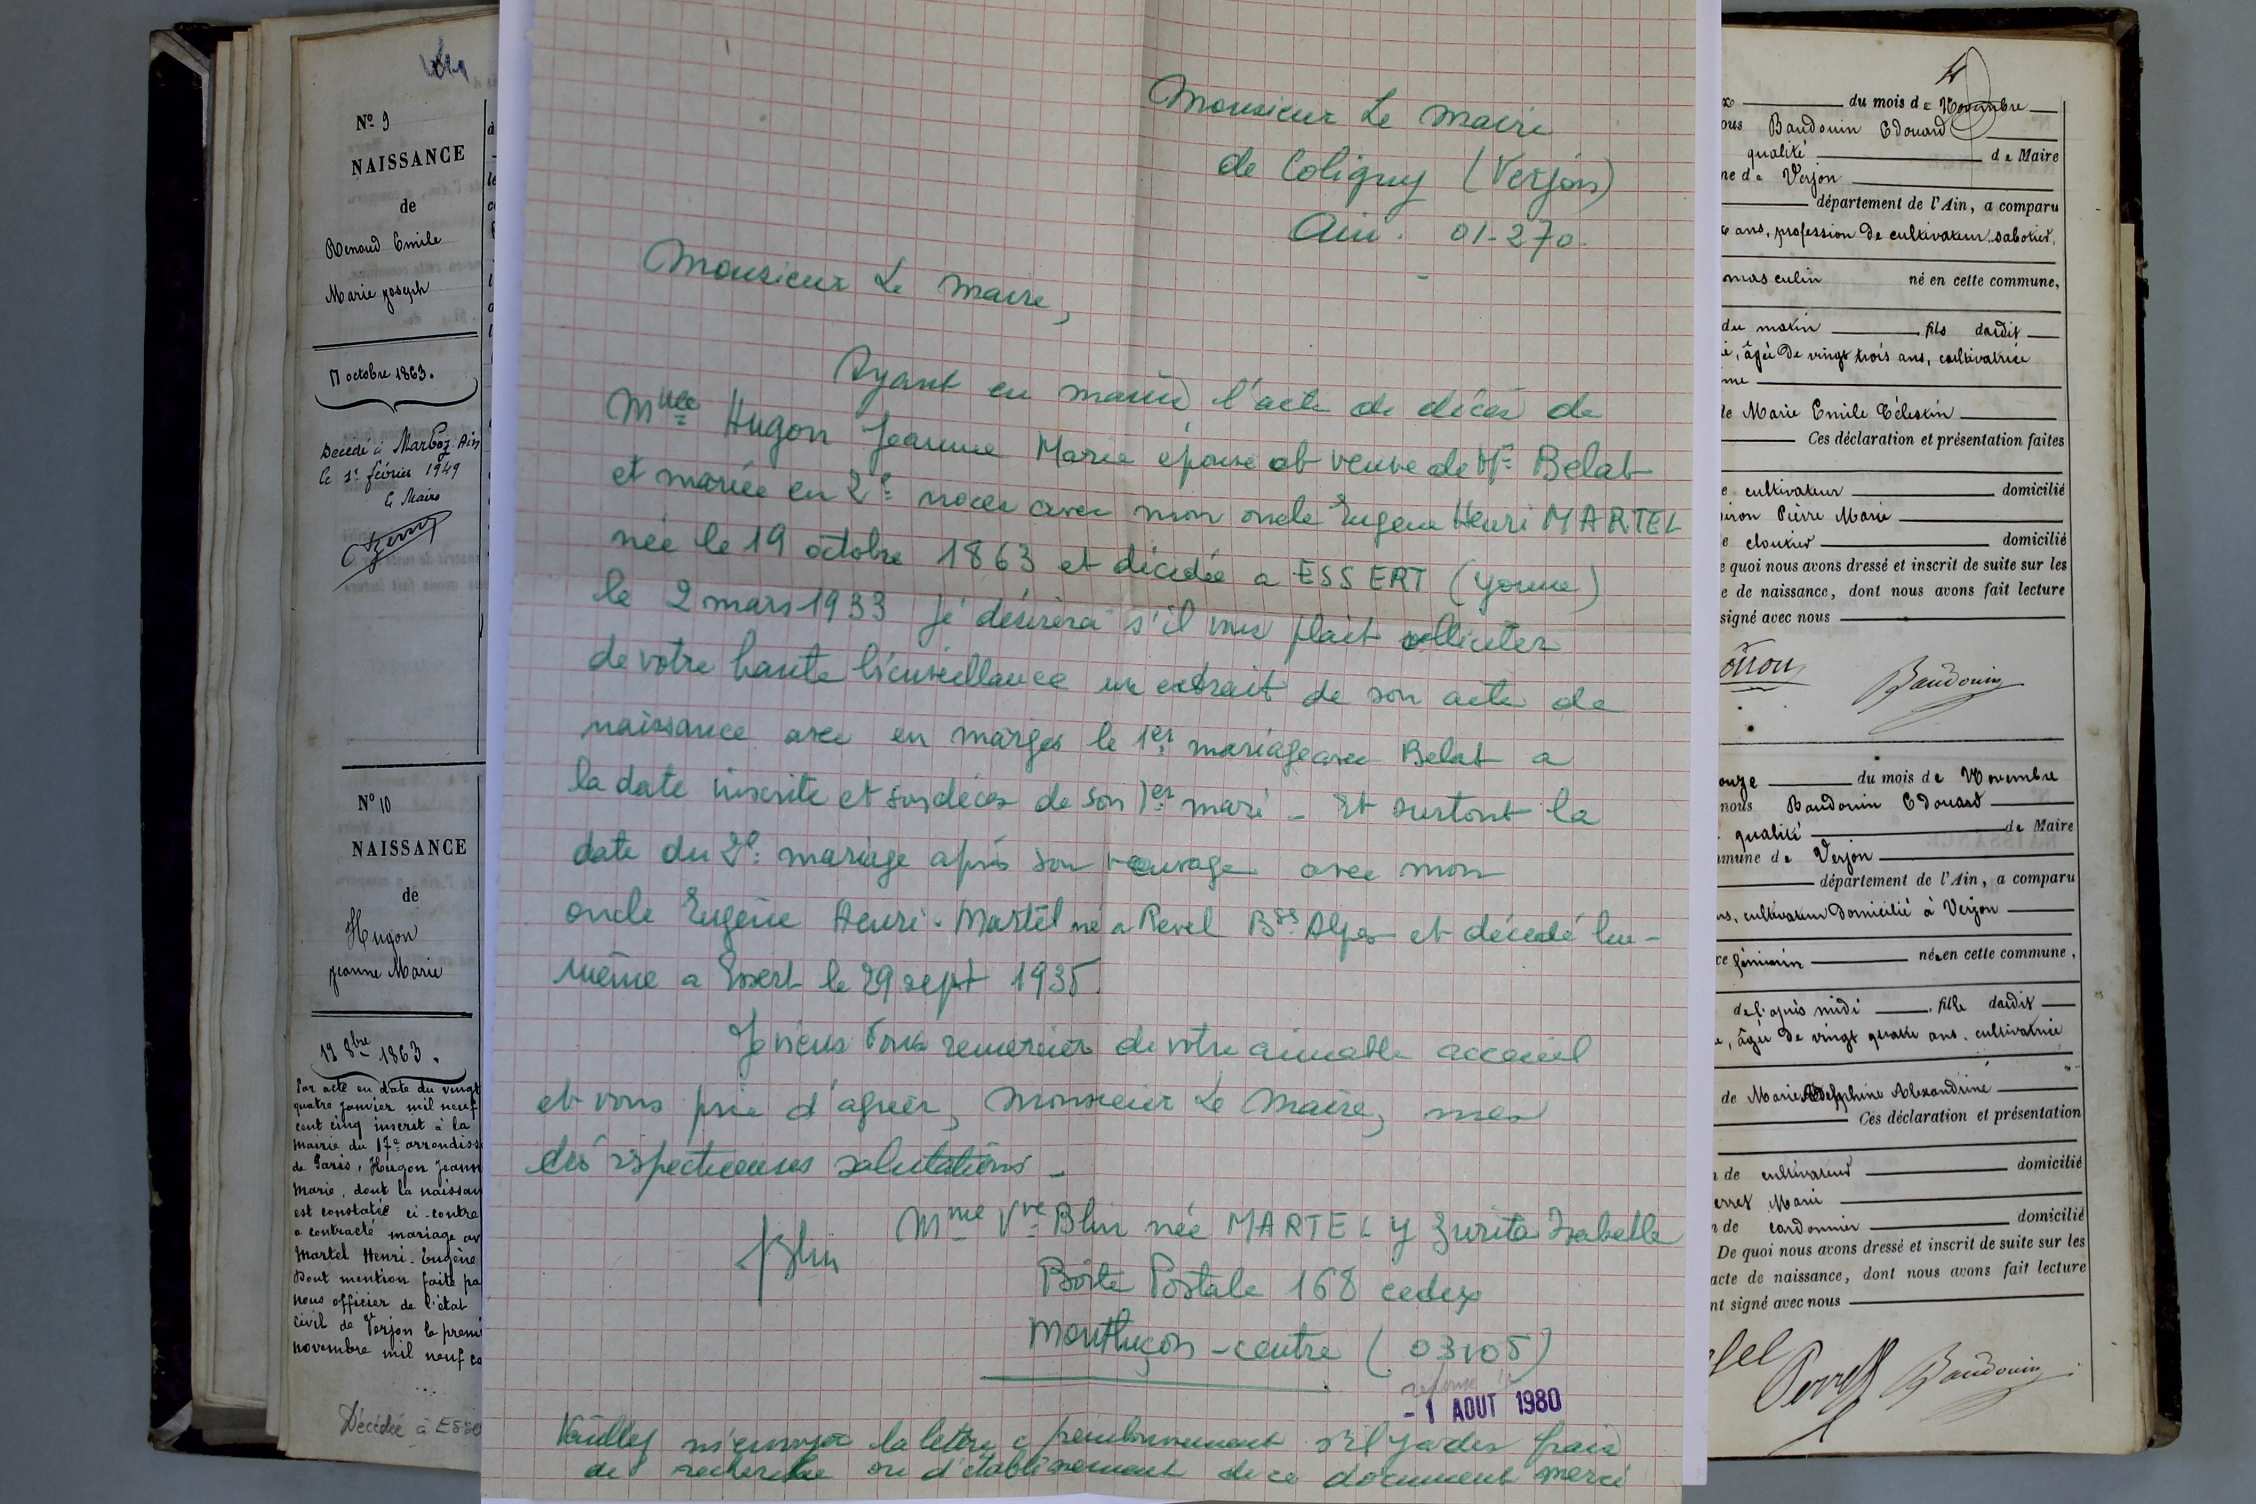 No 9
NAISSANCE
de
Renoud Emile
Marie joseph
17 octobre 1863.
Décédé à Marboz Ain
le 1er février 1949
le Maire
No 10
NAISSANCE
de
Hugon
jeanne Marie
19 8bre 1863.
Par acte en date du vingt
quatre janvier mil neuf
cent cinq inscrit à la
mairie du 17e arrondiss
de Paris, Hugon Jeann
Marie, dont la naissan
est constatée ci-contre
a contracté mariage av
Martel Henri-Eugène
Dont mention faite pa
nous officier de l'état
civil de Verjon le premi
novembre mil neuf ce
Décédée à Esse
Monsieur Le Maire
de Coligny (Verjon)
Ain. 01-270.
Monsieur Le Maire,
Ayant en mains l'acte de décès de
Mme Hugon Jeanne Marie épouse et veuve de Mr Belat
et mariée en 2e noces avec mon oncle Eugène Henri MARTEL
née le 19 octobre 1863 et décédée a ESSERT (Yonne)
le 2 mars 1933 je désirerai s'il vous plait solliciter
de votre haute bienveillance un extrait de son acte de
naissance avec en marges le 1er mariage avec Belat a
la date inscrite et son décès de son 1er mari - et surtout la
date du 2e mariage après son veuvage avec mon
oncle Eugène Henri-Martel né a Revel Bses Alpes et décédé lui-
même a Essert le 29 sept 1935.
Je viens vous remercier de votre aimable accueil
et vous prie d'agréer, Monsieur Le Maire, mes
dés respectueuses salutations -
Mme Vve Blin née MARTEL y Zurita Isabelle
Blin
Boite Postale 168 cedex
Montluçon-centre (03105)
réponse le
- 1 AOUT 1980
Veuillez m'envoyer la lettre c remboursement s'il y a des frais
de recherche ou d'établissement de ce document merci
du mois de Novembre
ous Baudouin Edouard
qualité de Maire
ne de Verjon
département de l'Ain, a comparu
ans, profession de cultivateur sabotier,
masculin né en cette commune,
du matin fils dudit
âgée de vingt trois ans, cultivatrice
me
de Marie Emile Célestin
Ces déclaration et présentation faites
e cultivateur domicilié
iron Pierre Marie
e cloutier domicilié
e quoi nous avons dressé et inscrit de suite sur les
e de naissance, dont nous avons fait lecture
signé avec nous
Baudouin
onze du mois de Novembre
nous Baudouin Edouard
qualité de Maire
mmune de Verjon
département de l'Ain, a comparu
ns, cultivateur domicilié à Verjon
ce féminin née en cette commune,
de l'après midi fille dudit
âgée de vingt quatre ans. cultivatrice
de Marie Delphine Alexandrine
Ces déclaration et présentation
n de cultivateur domicilié
erret Marie
n de cordonnier domicilié
De quoi nous avons dressé et inscrit de suite sur les
acte de naissance, dont nous avons fait lecture
nt signé avec nous
Perret Baudouin